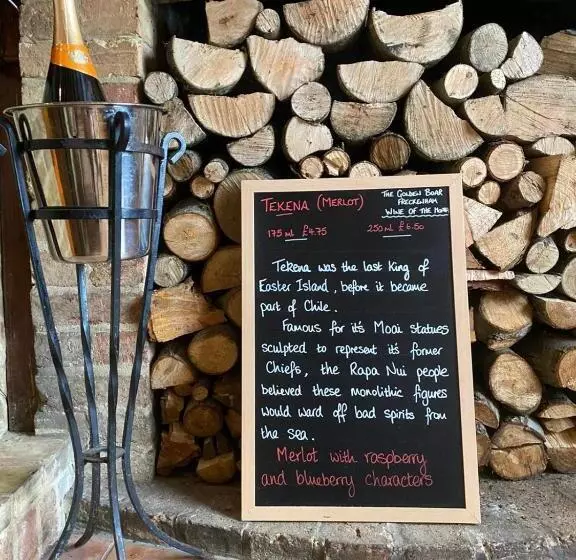 TEKENA (MERLOT)
THE GOLDEN BOAR
FRECKENHAM
WINE OF THE MONTH
175 ml £4.75
250 ml £6.50
Tekena was the last King of
Easter Island, before it became
part of Chile.
Famous for it's Moai statues
sculpted to represent it's former
Chiefs, the Rapa Nui people
believed these monolithic figures
would ward off bad spirits from
the sea.
Merlot with raspberry
and blueberry characters